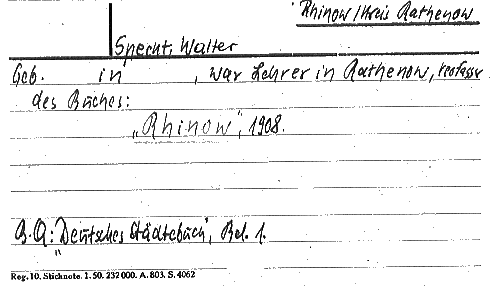 Rhinow/Kreis Rathenow
Specht, Walter
Geb. in , war Lehrer in Rathenow, Verfasser
des Buches:
„Rhinow", 1908.
B.Q.: „Deutsches Städtebuch", Bd. 1.
Reg. 10. Sticknote. 1. 50. 232000. A. 803. S. 4062